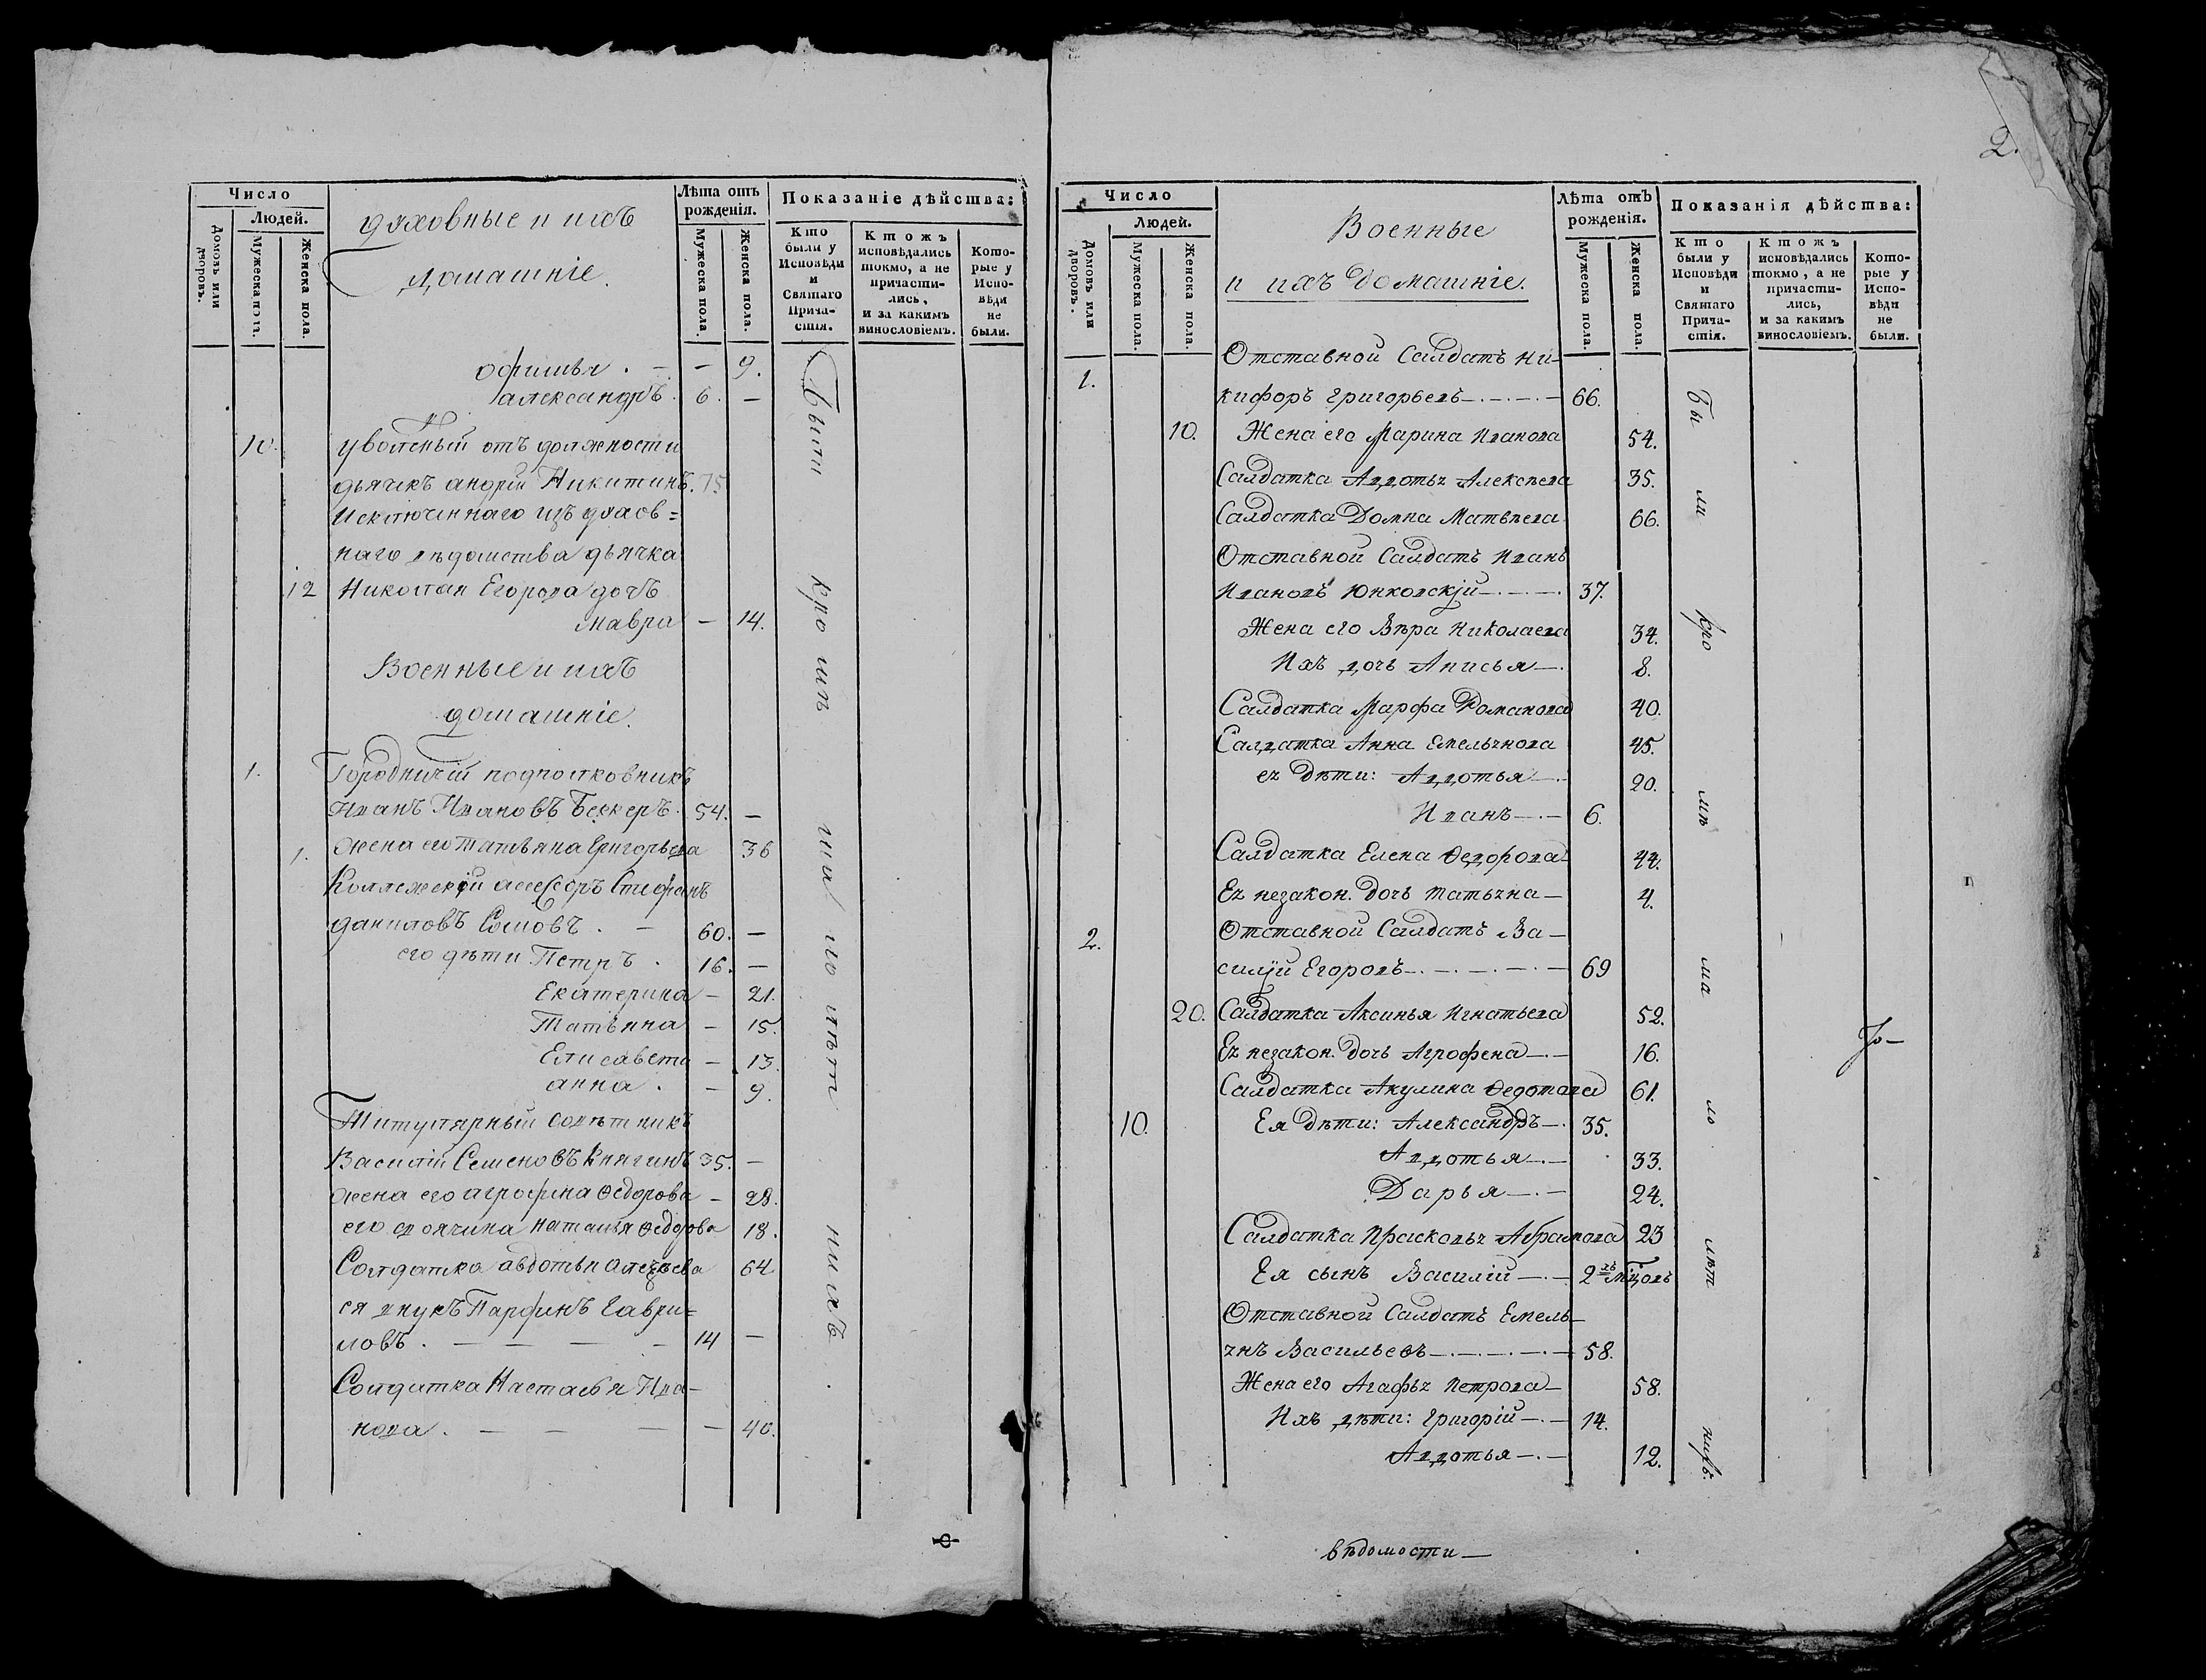 Число
Людей.
Домовъ или дворовъ.
Мужеска пола.
Женска пола.
Духовные и ихъ
домашніе.
Лѣта отъ
рожденія.
Мужеска пола.
Женска пола.
Показаніе дѣйства:
Кто
были у
Исповѣди
и
Святаго
Прича-
стія.
Ктожъ
исповѣдались
токмо, а не
причасти-
лись,
и за какимъ
винословіемъ.
Кото-
рые у
Испо-
вѣди
не
были.
Офимья . — — 9.
Александръ . 6. —
10. Уволеный отъ должности
дьячкъ Андрій Никитинъ. 75
Исключеннаго изъ духов=
наго вѣдомства дьячка
12 Николая Егорова дочь
Мавра — 14.
Военные и ихъ
домашніе.
1. Городничій подполковникъ
Иванъ Ивановъ Беккеръ. 54. —
1. Жена его Татьяна Григорьева 36
Коллежскій ассессоръ Стефанъ
Даниловъ Сомовъ . — 60. —
его дѣти Петръ . 16. —
Екатерина — 21.
Татьяна — 15.
Елисавета — 13.
Анна . — 9.
Титулярный совѣтникъ
Василій Семеновъ Княгинъ 35. —
Жена его Агрофена Федорова — 28.
его своячина Наталья Федорова 18.
Солдатка Авдотья Алексѣева 64
ея внукъ Парфинъ Гаври=
ловъ . — — — — 14 —
Солдатка Настасья Ива-
нова . — — — — 40.
Были
кромѣ
мало
лѣт
нихъ
2.
Число
Людей.
Домовъ или дворовъ.
Мужеска пола.
Женска пола.
Военные
и ихъ домашніе.
Лѣта отъ
рожденія.
Мужеска пола.
Женска пола.
Показанія дѣйства:
Кто
были у
Исповѣди
и
Святаго
Прича-
стія.
Ктожъ
исповѣдались
токмо, а не
причасти-
лись,
и за какимъ
винословіемъ.
Кото-
рые у
Испо-
вѣди
не
были.
Отставной Салдатъ Ни-
1. кифоръ Григорьевъ 66.
10. Жена его Марина Иванова 54.
Салдатка Авдотья Алексѣева 35.
Салдатка Домна Матвѣева 66.
Отставной Салдатъ Иванъ
Ивановъ Юнковскій 37.
Жена его Вѣра Николаева 34.
Ихъ дочь Анисья 8.
Салдатка Марфа Романова 40.
Салдатка Анна Емельянова 45.
ея дѣти: Авдотья 20.
Иванъ 6.
Салдатка Елена Ѳедорова 44.
Ея незакон. дочь Татьяна 4.
2. Отставной Салдатъ Ва-
силій Егоровъ 69
20. Салдатка Аксинья Игнатьева 52.
Ея незакон. дочь Агрофена 16.
Салдатка Акулина Ѳедотова 61.
10. Ея дѣти: Александръ 35.
Авдотья 33.
Дарья 24.
Салдатка Прасковья Абрамова 23
Ея сынъ Василій 2хъ мцовъ
Отставной Салдатъ Емель-
янъ Васильевъ 58.
Жена его Агафья Петрова 58.
Ихъ дѣти: Григорій 14.
Авдотья 12.
Бы
ли
кро
мѣ
ма
ло
лѣт
нихъ.
вѣдомости